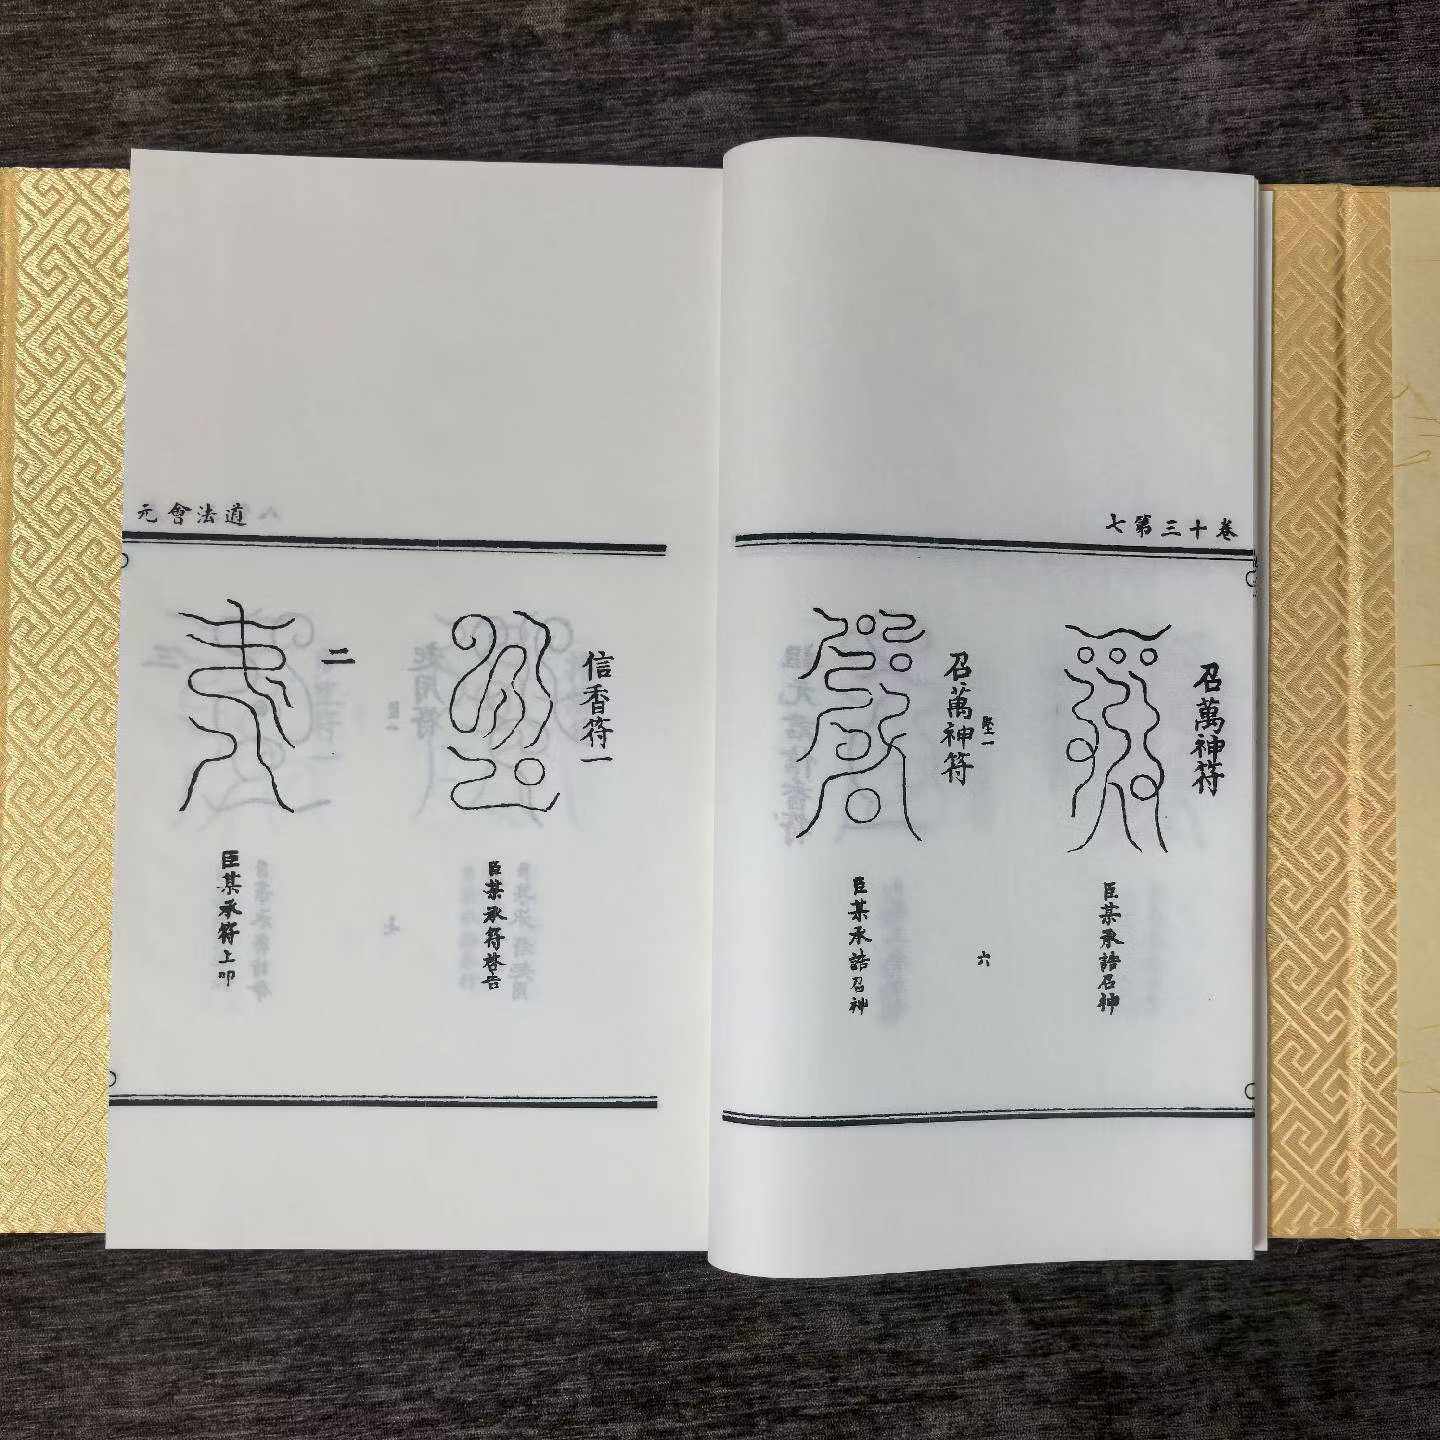 卷十三第七
召萬神符
臣某承誥召神
六
召萬神符
臣某承誥召神
道法會元
信香符一
臣某承符啓告
二
臣某承符上叩